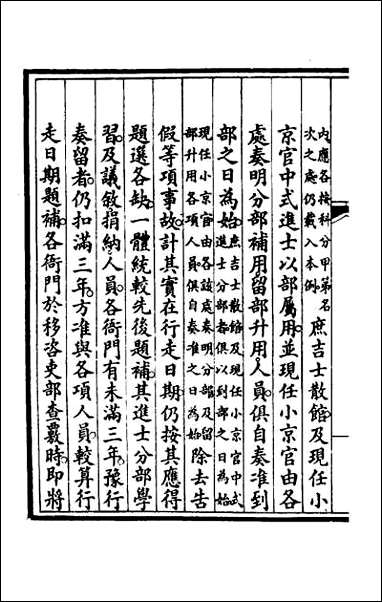 内應各按科分甲第名
次之處仍載入本例
庶吉士散館及現任小
京官中式進士以部屬用並現任小京官由各
處奏明分部補用留部升用人員俱自奏准到
部之日為始
庶吉士散館及現任小京官中式
進士分部者俱以到部之日為始
現任小京官由各該處奏明分部及留
部升用各項人員俱自奏准之日為始
除去告
假等項事故計其實在行走日期仍按其應得
題選各缺一體統較先後題補其進士分部學
習及議敘捐納人員各衙門有未滿三年豫行
奏留者仍扣滿三年方准與各項人員較算行
走日期題補各衙門於移咨吏部查覈時即將